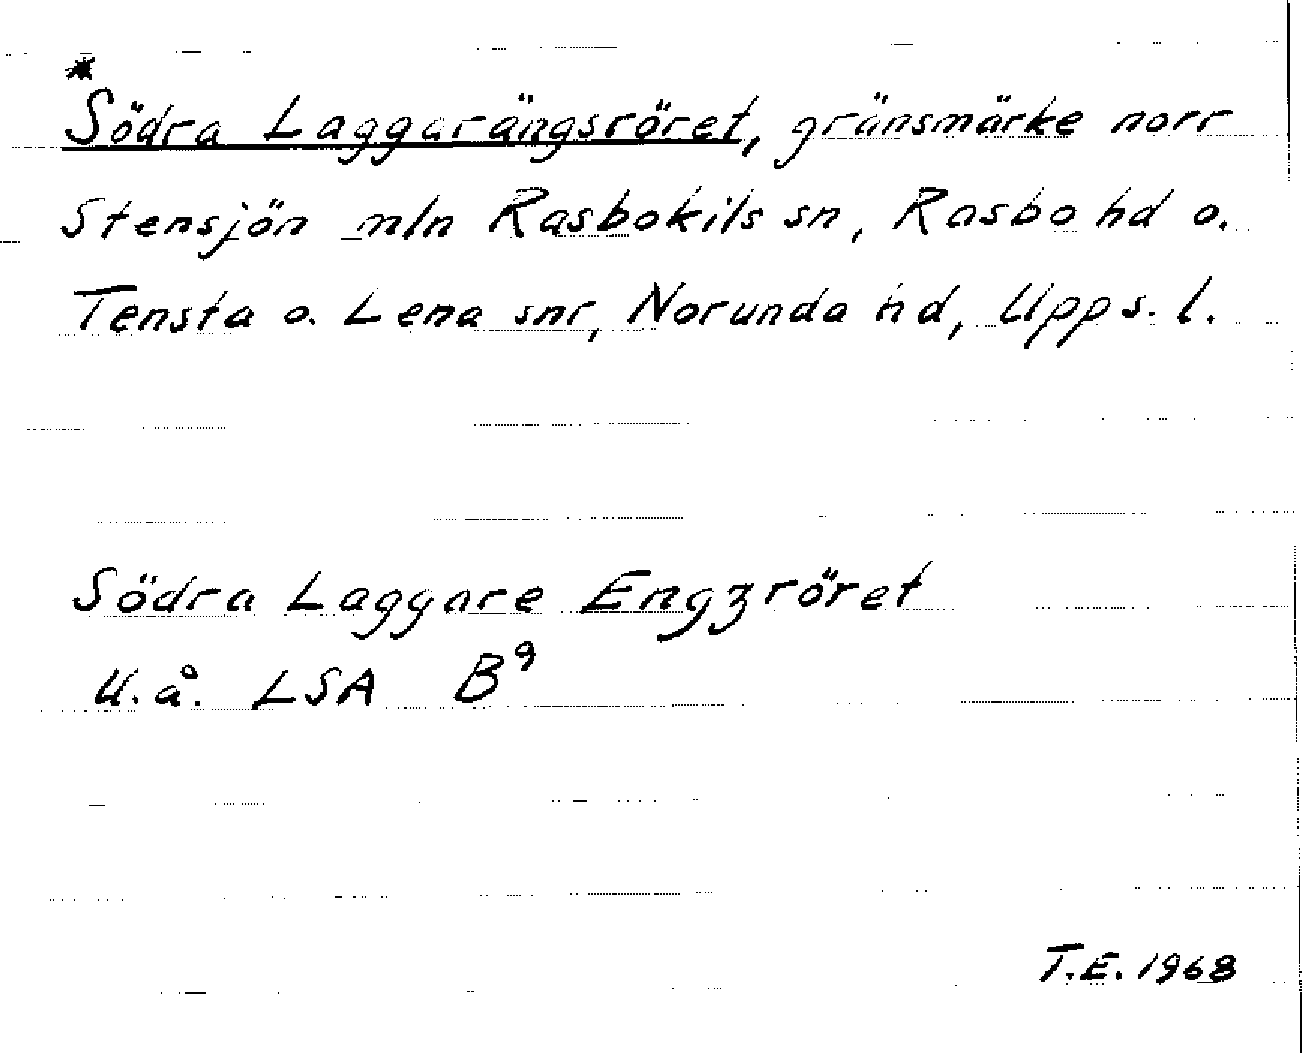 *
Södra Laggarängsröret, gränsmärke norr
Stensjön mln Rasbokils sn, Rasbo hd o.
Tensta o. Lena snr, Norunda hd, Upps. l.
Södra Laggare Engzröret
U.å. LSA B⁹
T.E. 1968